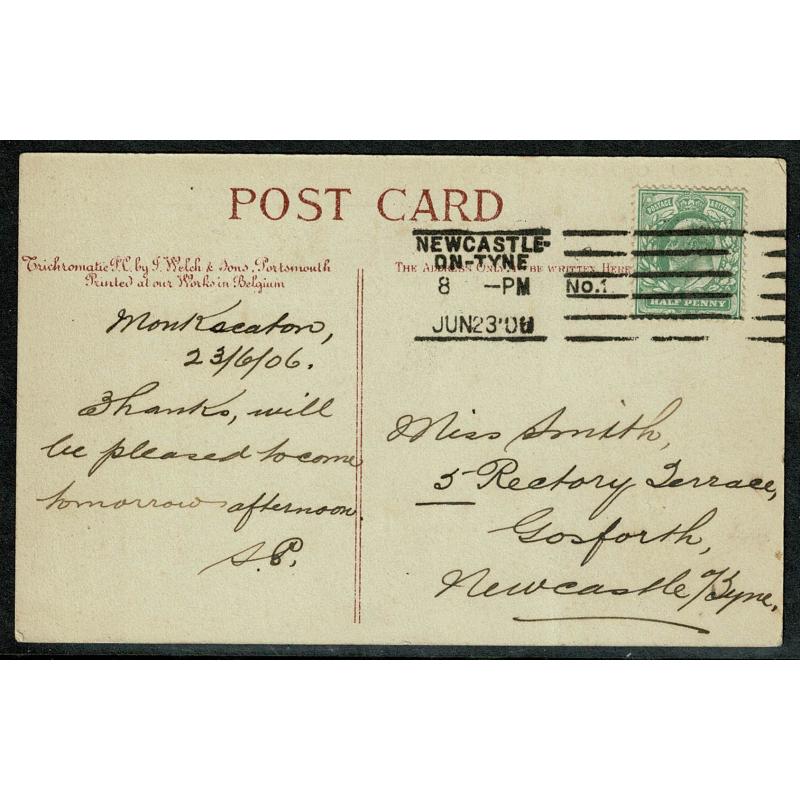 POST CARD
Trichromatic P.C. by J. Welch & Sons, Portsmouth
Printed at our Works in Belgium
THE ADDRESS ONLY TO BE WRITTEN HERE
NEWCASTLE-
ON-TYNE
8 -PM
JUN 23 '06
No.1.
POSTAGE & REVENUE
HALF PENNY
Monkseaton,
23/6/06.
Thanks, will
be pleased to come
tomorrow afternoon.
S.P.
Miss Smith,
5 Rectory Terrace,
Gosforth,
Newcastle o/Tyne.